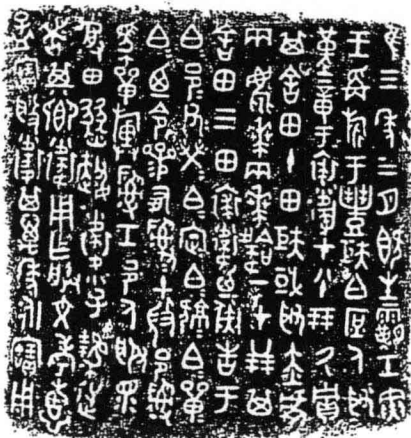 隹三年三月既生霸壬寅
王爯旂于豐矩白庶人取
堇章于裘衛才八十朋厥貯
其舍田十田矩或取赤虎
兩麀𠦪兩𠦪韐一才廿朋其
舍田三田裘衛乃彘告于
白邑父榮白定白白單
白乃令參有司司土微邑司
馬單旟司工邑人服眔
受田燹趞衛小子逆
者其鄉衛用乍朕文考惠
孟寶般衛其萬年永寶用